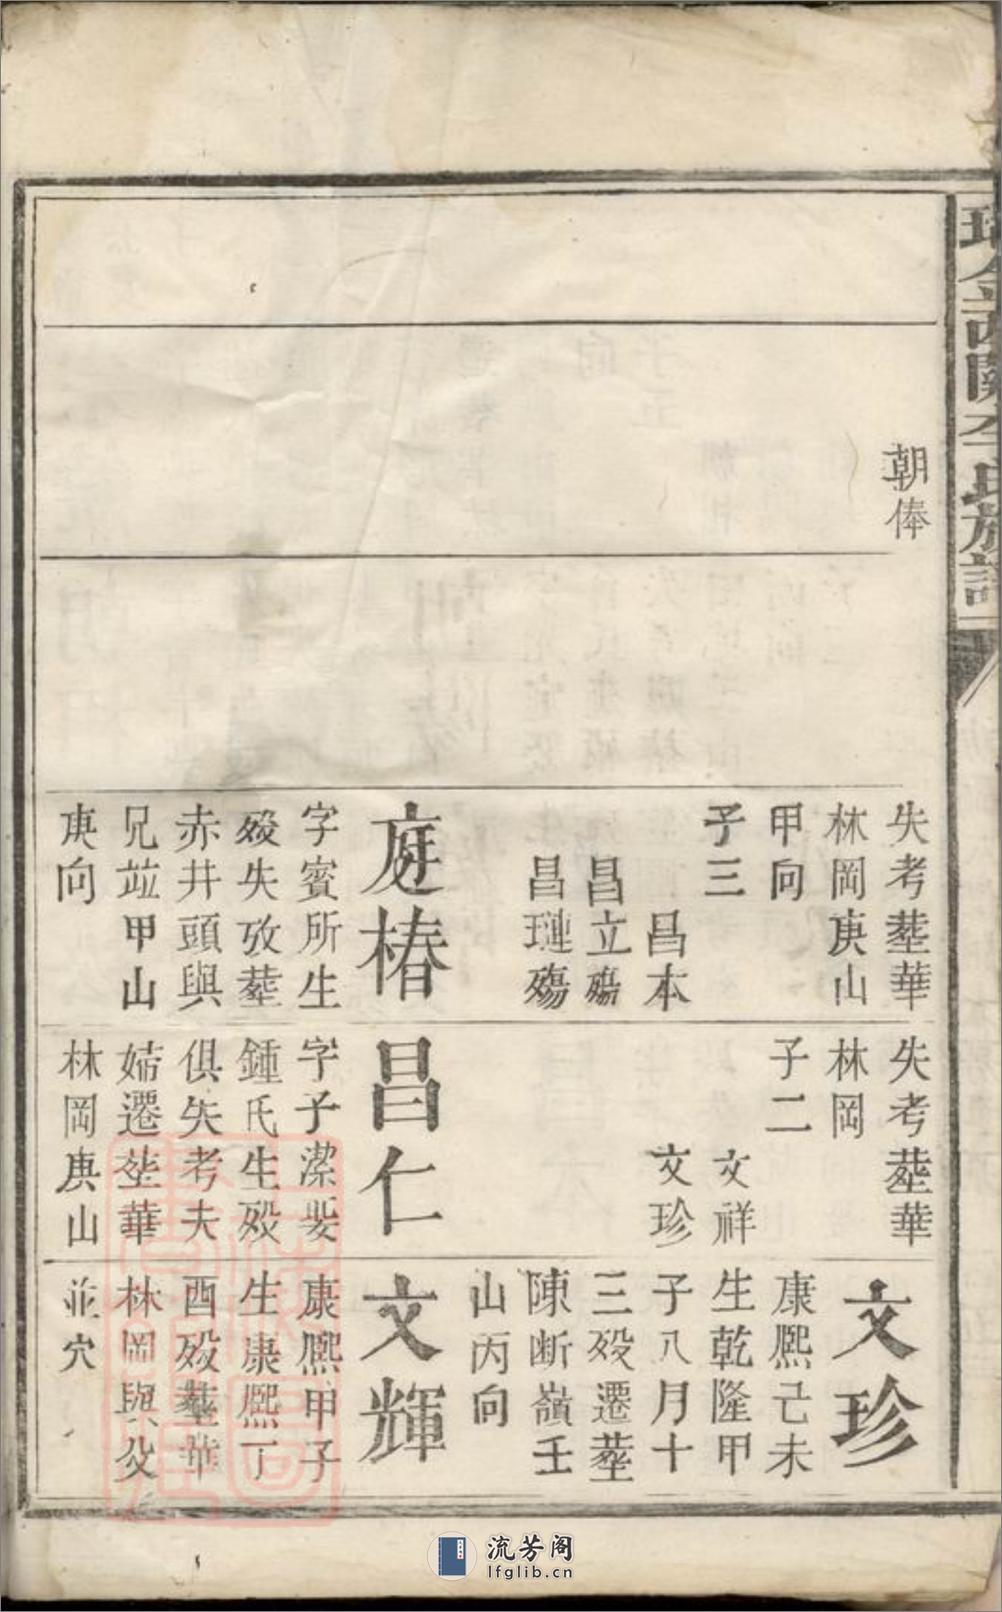 瑞金西關李氏族譜
朝俸
失考塟華
林岡庚山
甲向
子三
昌本
昌立殤
昌璉殤
庭椿
字賓所生
歿失攷塟
赤井頭與
兄竝甲山
庚向
失考塟華
林岡
子二
文祥
文珍
昌仁
字子潔娶
鍾氏生歿
俱失考夫
婦遷塟華
林岡庚山
文珍
康熙己未
生乾隆甲
子八月十
三歿遷塟
陳断嶺壬
山丙向
文輝
康熙甲子
生康熙丁
酉歿塟華
林岡與父
並穴
流芳阁
lfglib.cn